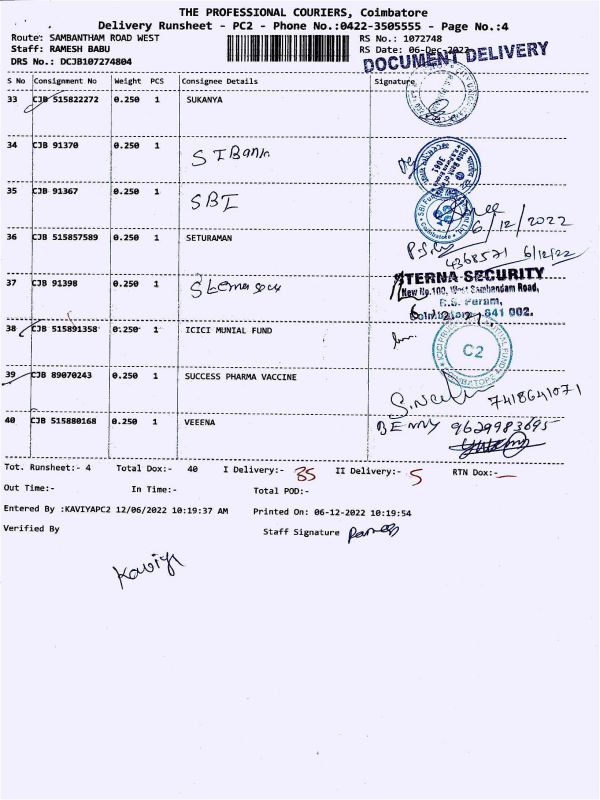 THE PROFESSIONAL COURIERS, Coimbatore
Delivery Runsheet - PC2 - Phone No.:0422-3505555 - Page No.:4
Route: SAMBANTHAM ROAD WEST RS No.: 1072748
Staff: RAMESH BABU RS Date: 06-Dec-2022
DRS No.: DCJB107274804 DOCUMENT DELIVERY
S No Consignment No Weight PCS Consignee Details Signature
33 CJB 515822272 0.250 1 SUKANYA
34 CJB 91370 0.250 1 SIBank
35 CJB 91367 0.250 1 SBI
6/12/2022
36 CJB 515857589 0.250 1 SETURAMAN
4368571 6/12/22
37 CJB 91398 0.250 1
TERNA SECURITY
New No.100, West Sambandam Road,
R.S. Puram,
Coimbatore - 641 002.
38 CJB 515891358 0.250 1 ICICI MUNIAL FUND
C2
39 CJB 89070243 0.250 1 SUCCESS PHARMA VACCINE
7418641071
40 CJB 515880168 0.250 1 VEEENA
9629983695
Tot. Runsheet:- 4 Total Dox:- 40 I Delivery:- 35 II Delivery:- 5 RTN Dox:-
Out Time:- In Time:- Total POD:-
Entered By :KAVIYAPC2 12/06/2022 10:19:37 AM Printed On: 06-12-2022 10:19:54
Verified By Staff Signature Ramesh
Kaviya